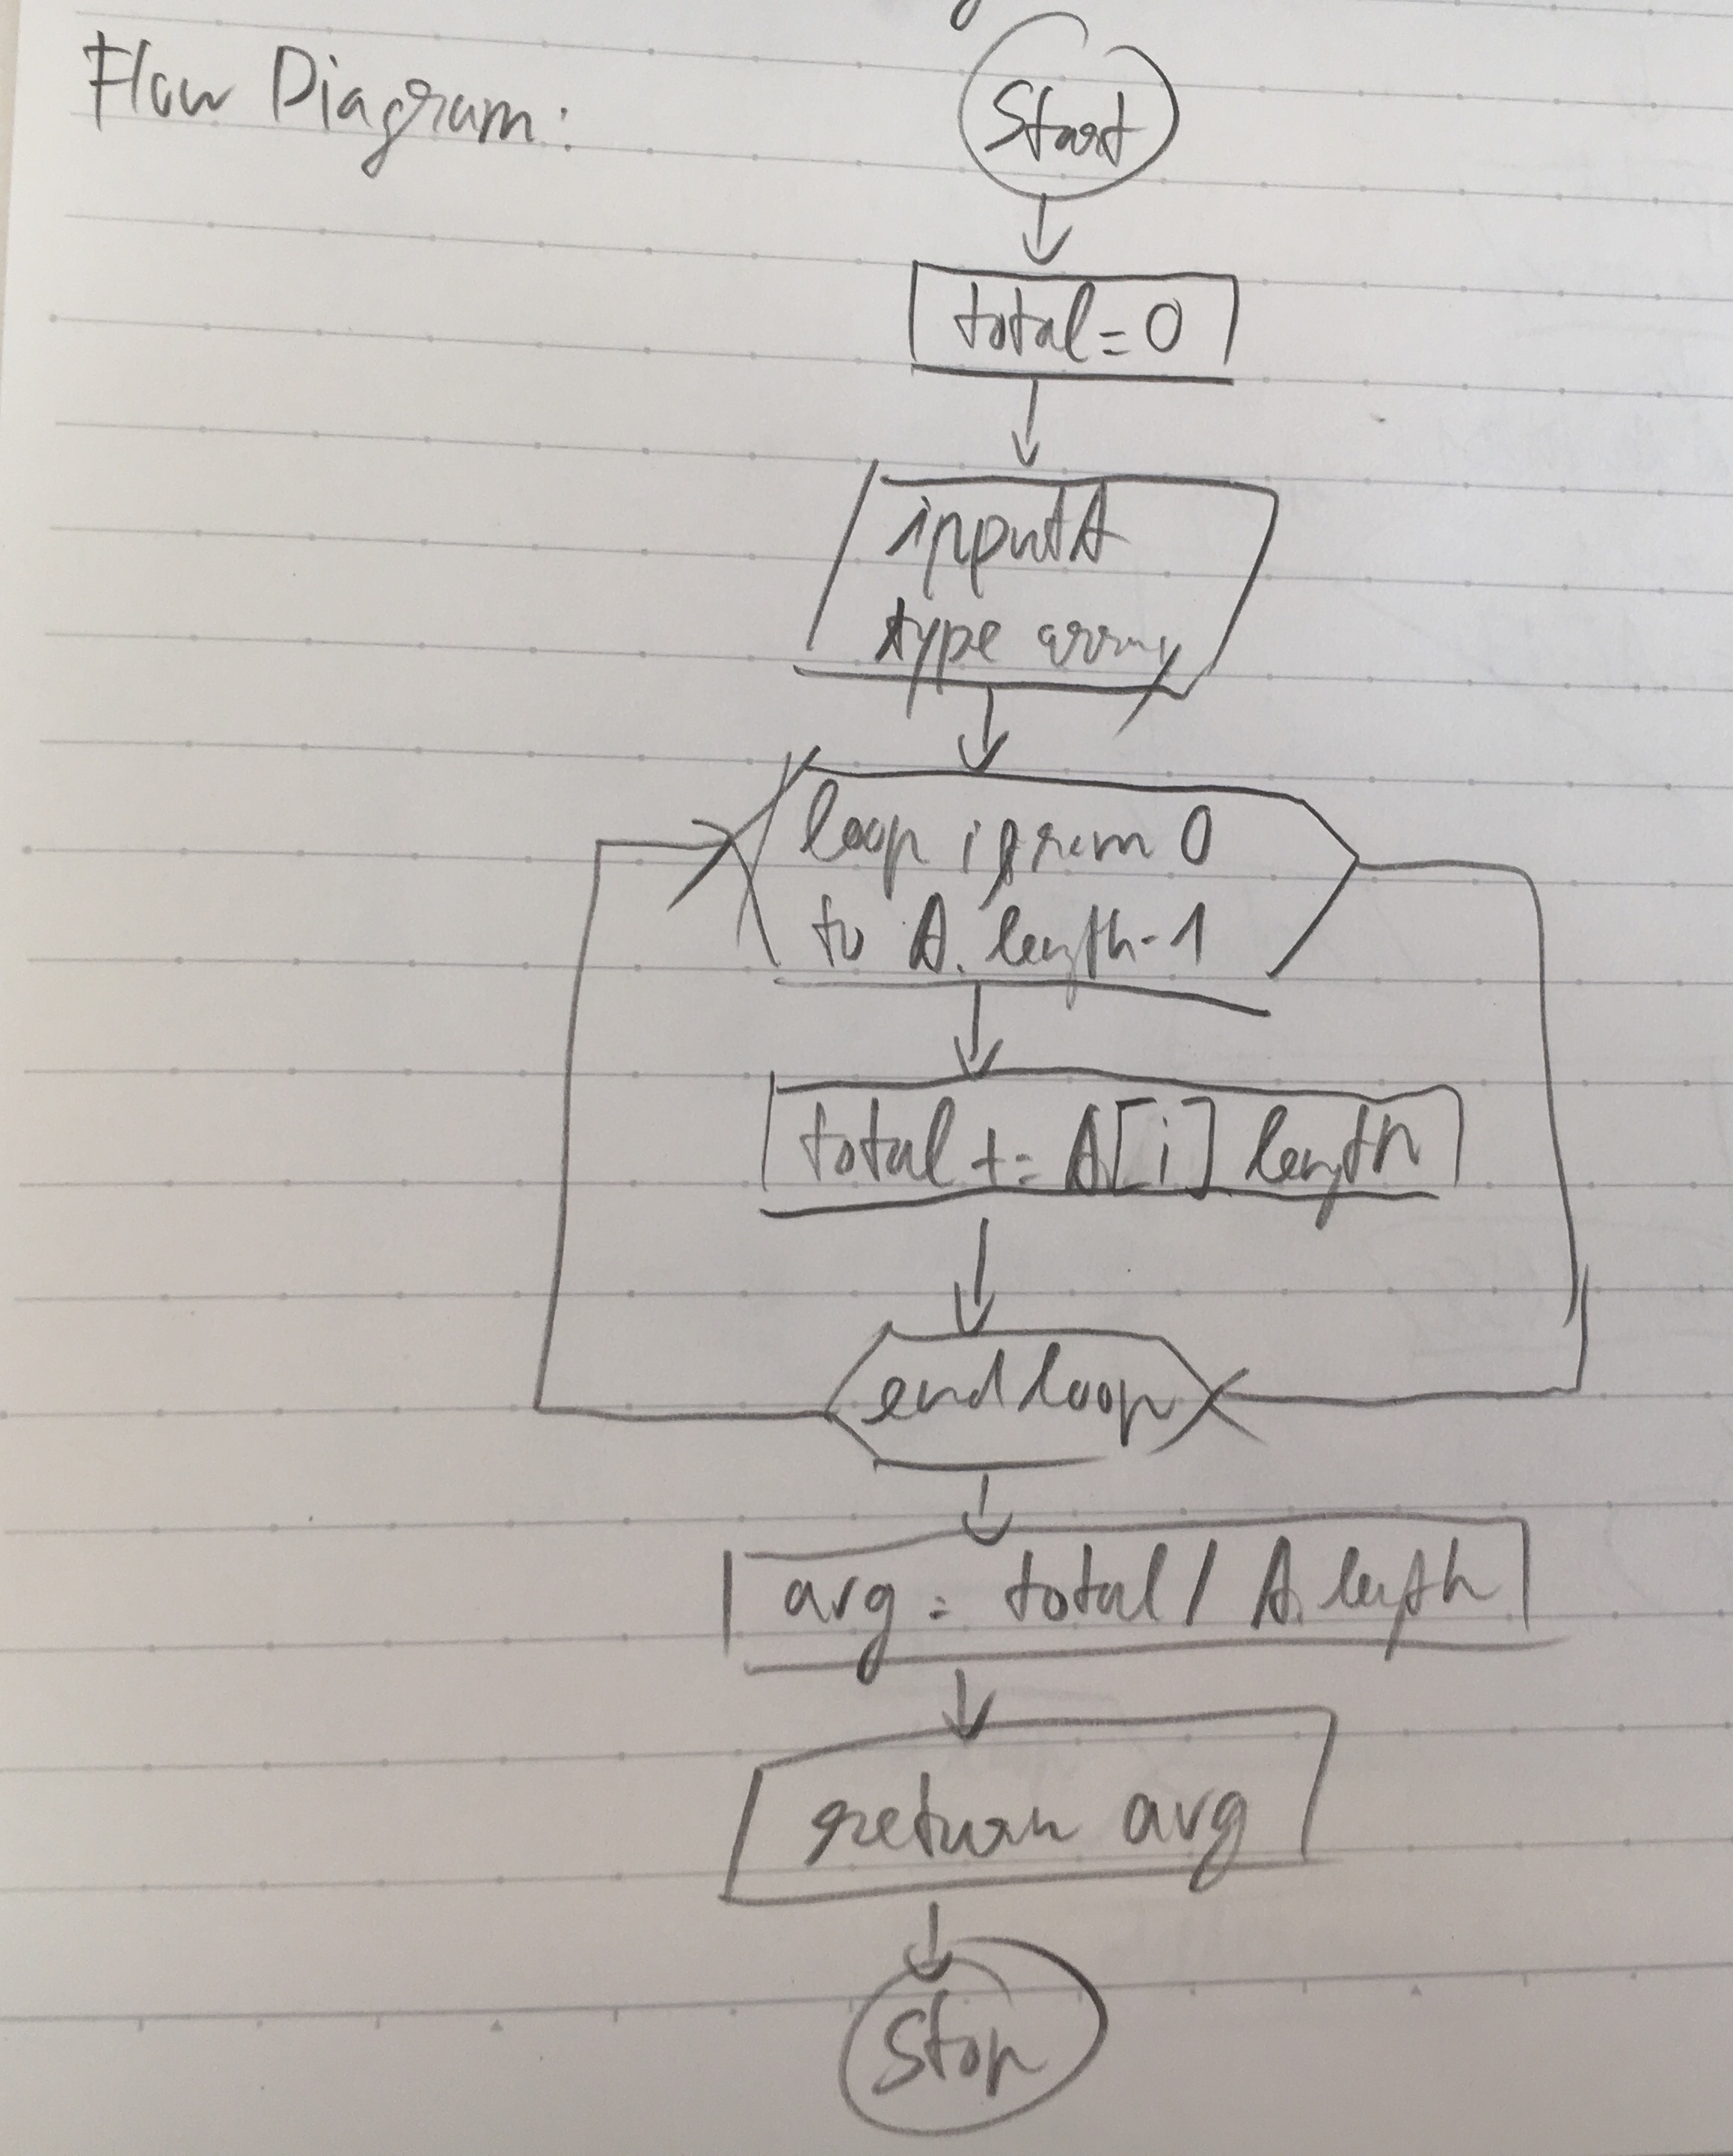 Flow Diagram:
Start
total = 0
input A
type array
loop i from 0
to A.length-1
total += A[i] length
end loop
avg = total / A.length
return avg
Stop